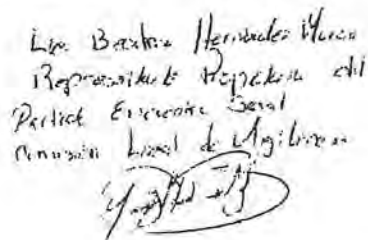 Lic. Beatriz Hernández
Representante Propietaria del
Partido Encuentro Social
Comisión Local de Vigilancia